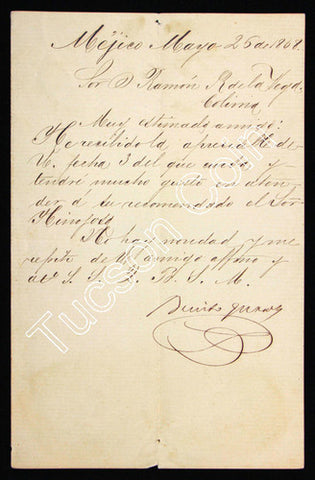 Méjico Mayo 26 de 1868.
Sor D Ramón R de la Vega
Colima
Muy estimado amigo:
He recibido la apreciable de
V. fecha 3 del que cursa, y
tendré mucho gusto en aten-
der a su recomendado el Sor
Hinojosa
No hay novedad y me
repito de V. amigo affmo y
at° S. S. Q. B. S. M.
Benito Juarez
Tucson.com